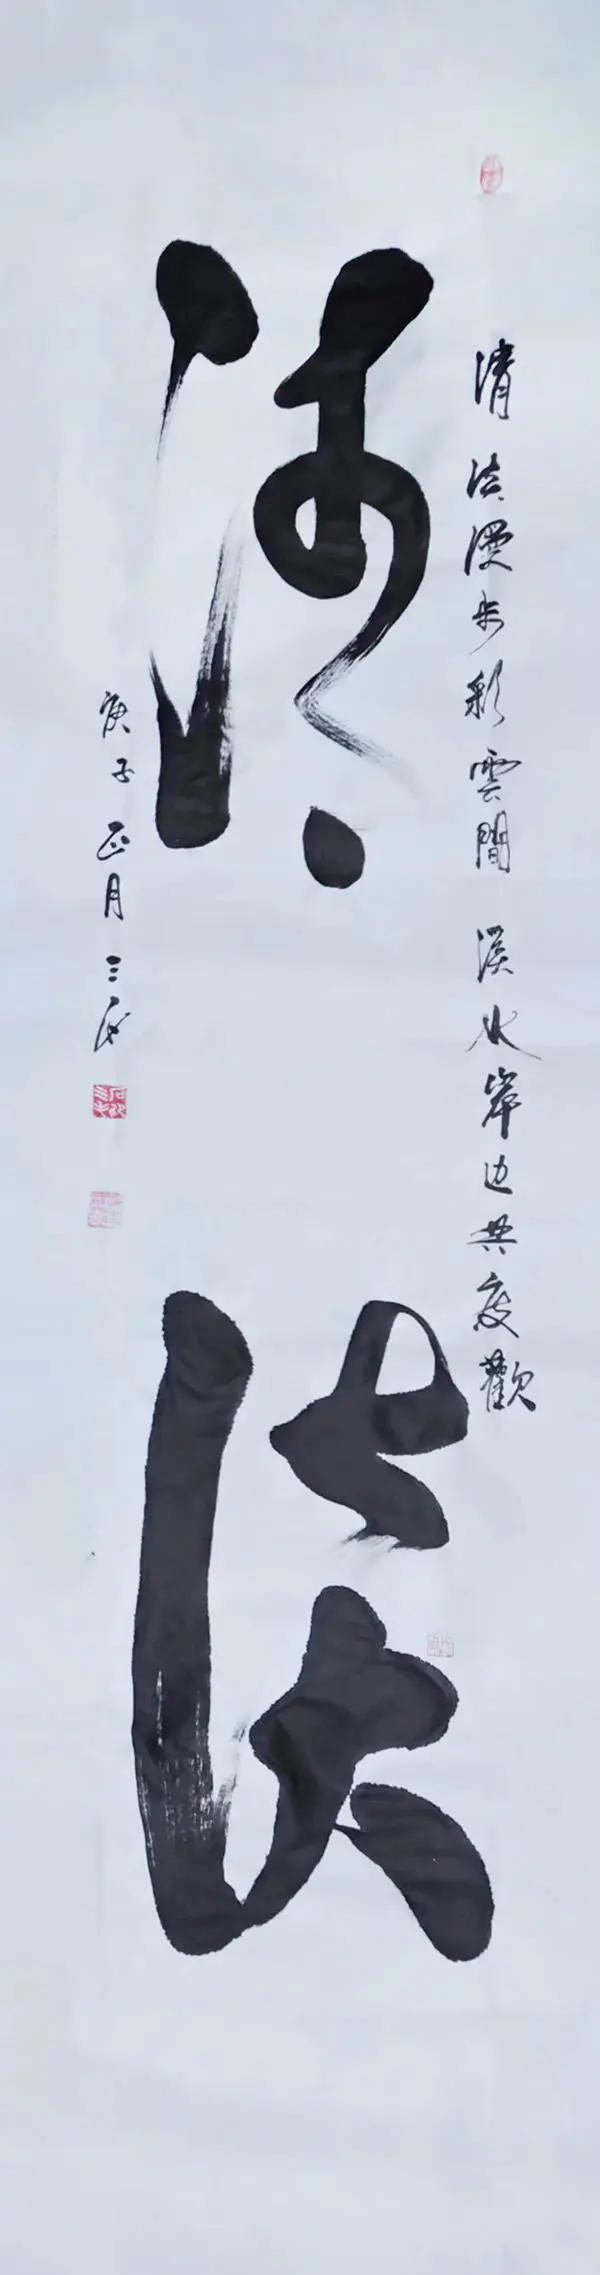 清淡漫步彩雲間 溪水岸边共度歡
清淡
庚子正月三